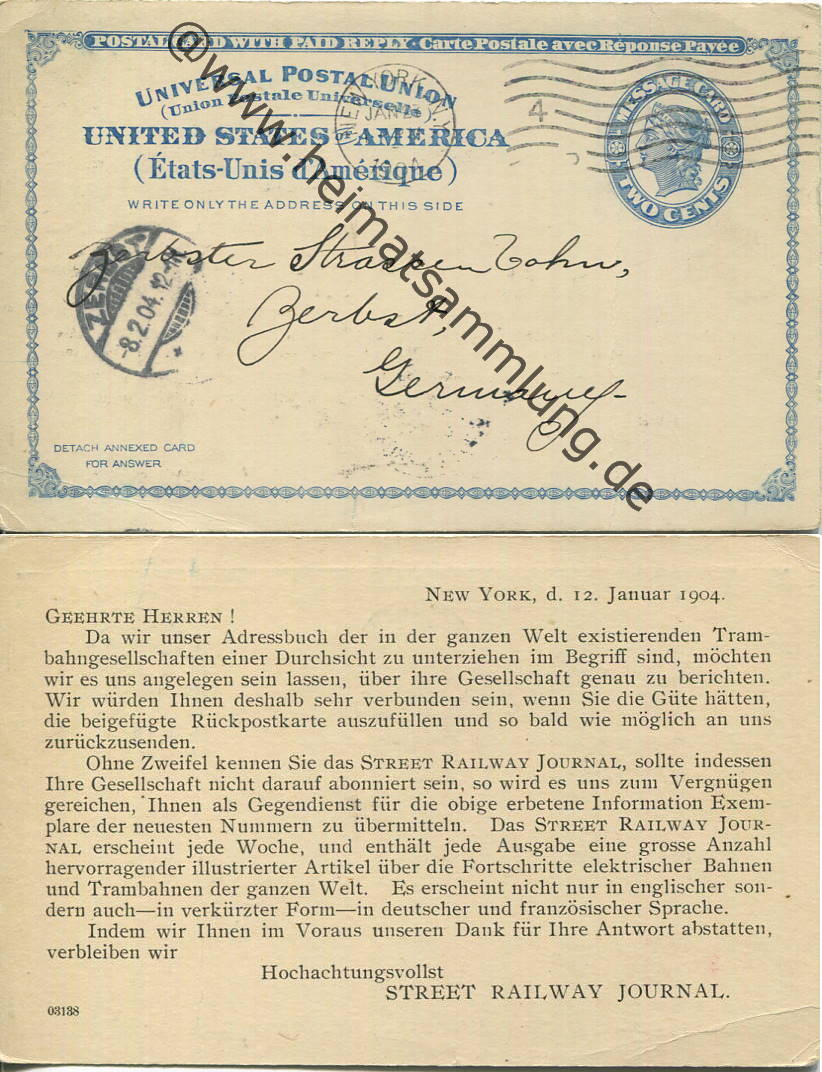 POSTAL CARD WITH PAID REPLY · Carte Postale avec Réponse Payée
UNIVERSAL POSTAL UNION
(Union Postale Universelle)
UNITED STATES OF AMERICA
(États-Unis d'Amérique)
WRITE ONLY THE ADDRESS ON THIS SIDE
MESSAGE CARD
TWO CENTS
NEW YORK
JAN
4
ZERBST
8.2.04.12-
Zerbster Strassen Bahn,
Zerbst,
Germany
DETACH ANNEXED CARD
FOR ANSWER
@www.heimatsammlung.de
NEW YORK, d. 12. Januar 1904.
GEEHRTE HERREN !
Da wir unser Adressbuch der in der ganzen Welt existierenden Tram-
bahngesellschaften einer Durchsicht zu unterziehen im Begriff sind, möchten
wir es uns angelegen sein lassen, über ihre Gesellschaft genau zu berichten.
Wir würden Ihnen deshalb sehr verbunden sein, wenn Sie die Güte hätten,
die beigefügte Rückpostkarte auszufüllen und so bald wie möglich an uns
zurückzusenden.
Ohne Zweifel kennen Sie das STREET RAILWAY JOURNAL, sollte indessen
Ihre Gesellschaft nicht darauf abonniert sein, so wird es uns zum Vergnügen
gereichen, Ihnen als Gegendienst für die obige erbetene Information Exem-
plare der neuesten Nummern zu übermitteln. Das STREET RAILWAY JOUR-
NAL erscheint jede Woche, und enthält jede Ausgabe eine grosse Anzahl
hervorragender illustrierter Artikel über die Fortschritte elektrischer Bahnen
und Trambahnen der ganzen Welt. Es erscheint nicht nur in englischer son-
dern auch—in verkürzter Form—in deutscher und französischer Sprache.
Indem wir Ihnen im Voraus unseren Dank für Ihre Antwort abstatten,
verbleiben wir
Hochachtungsvollst
STREET RAILWAY JOURNAL.
03138